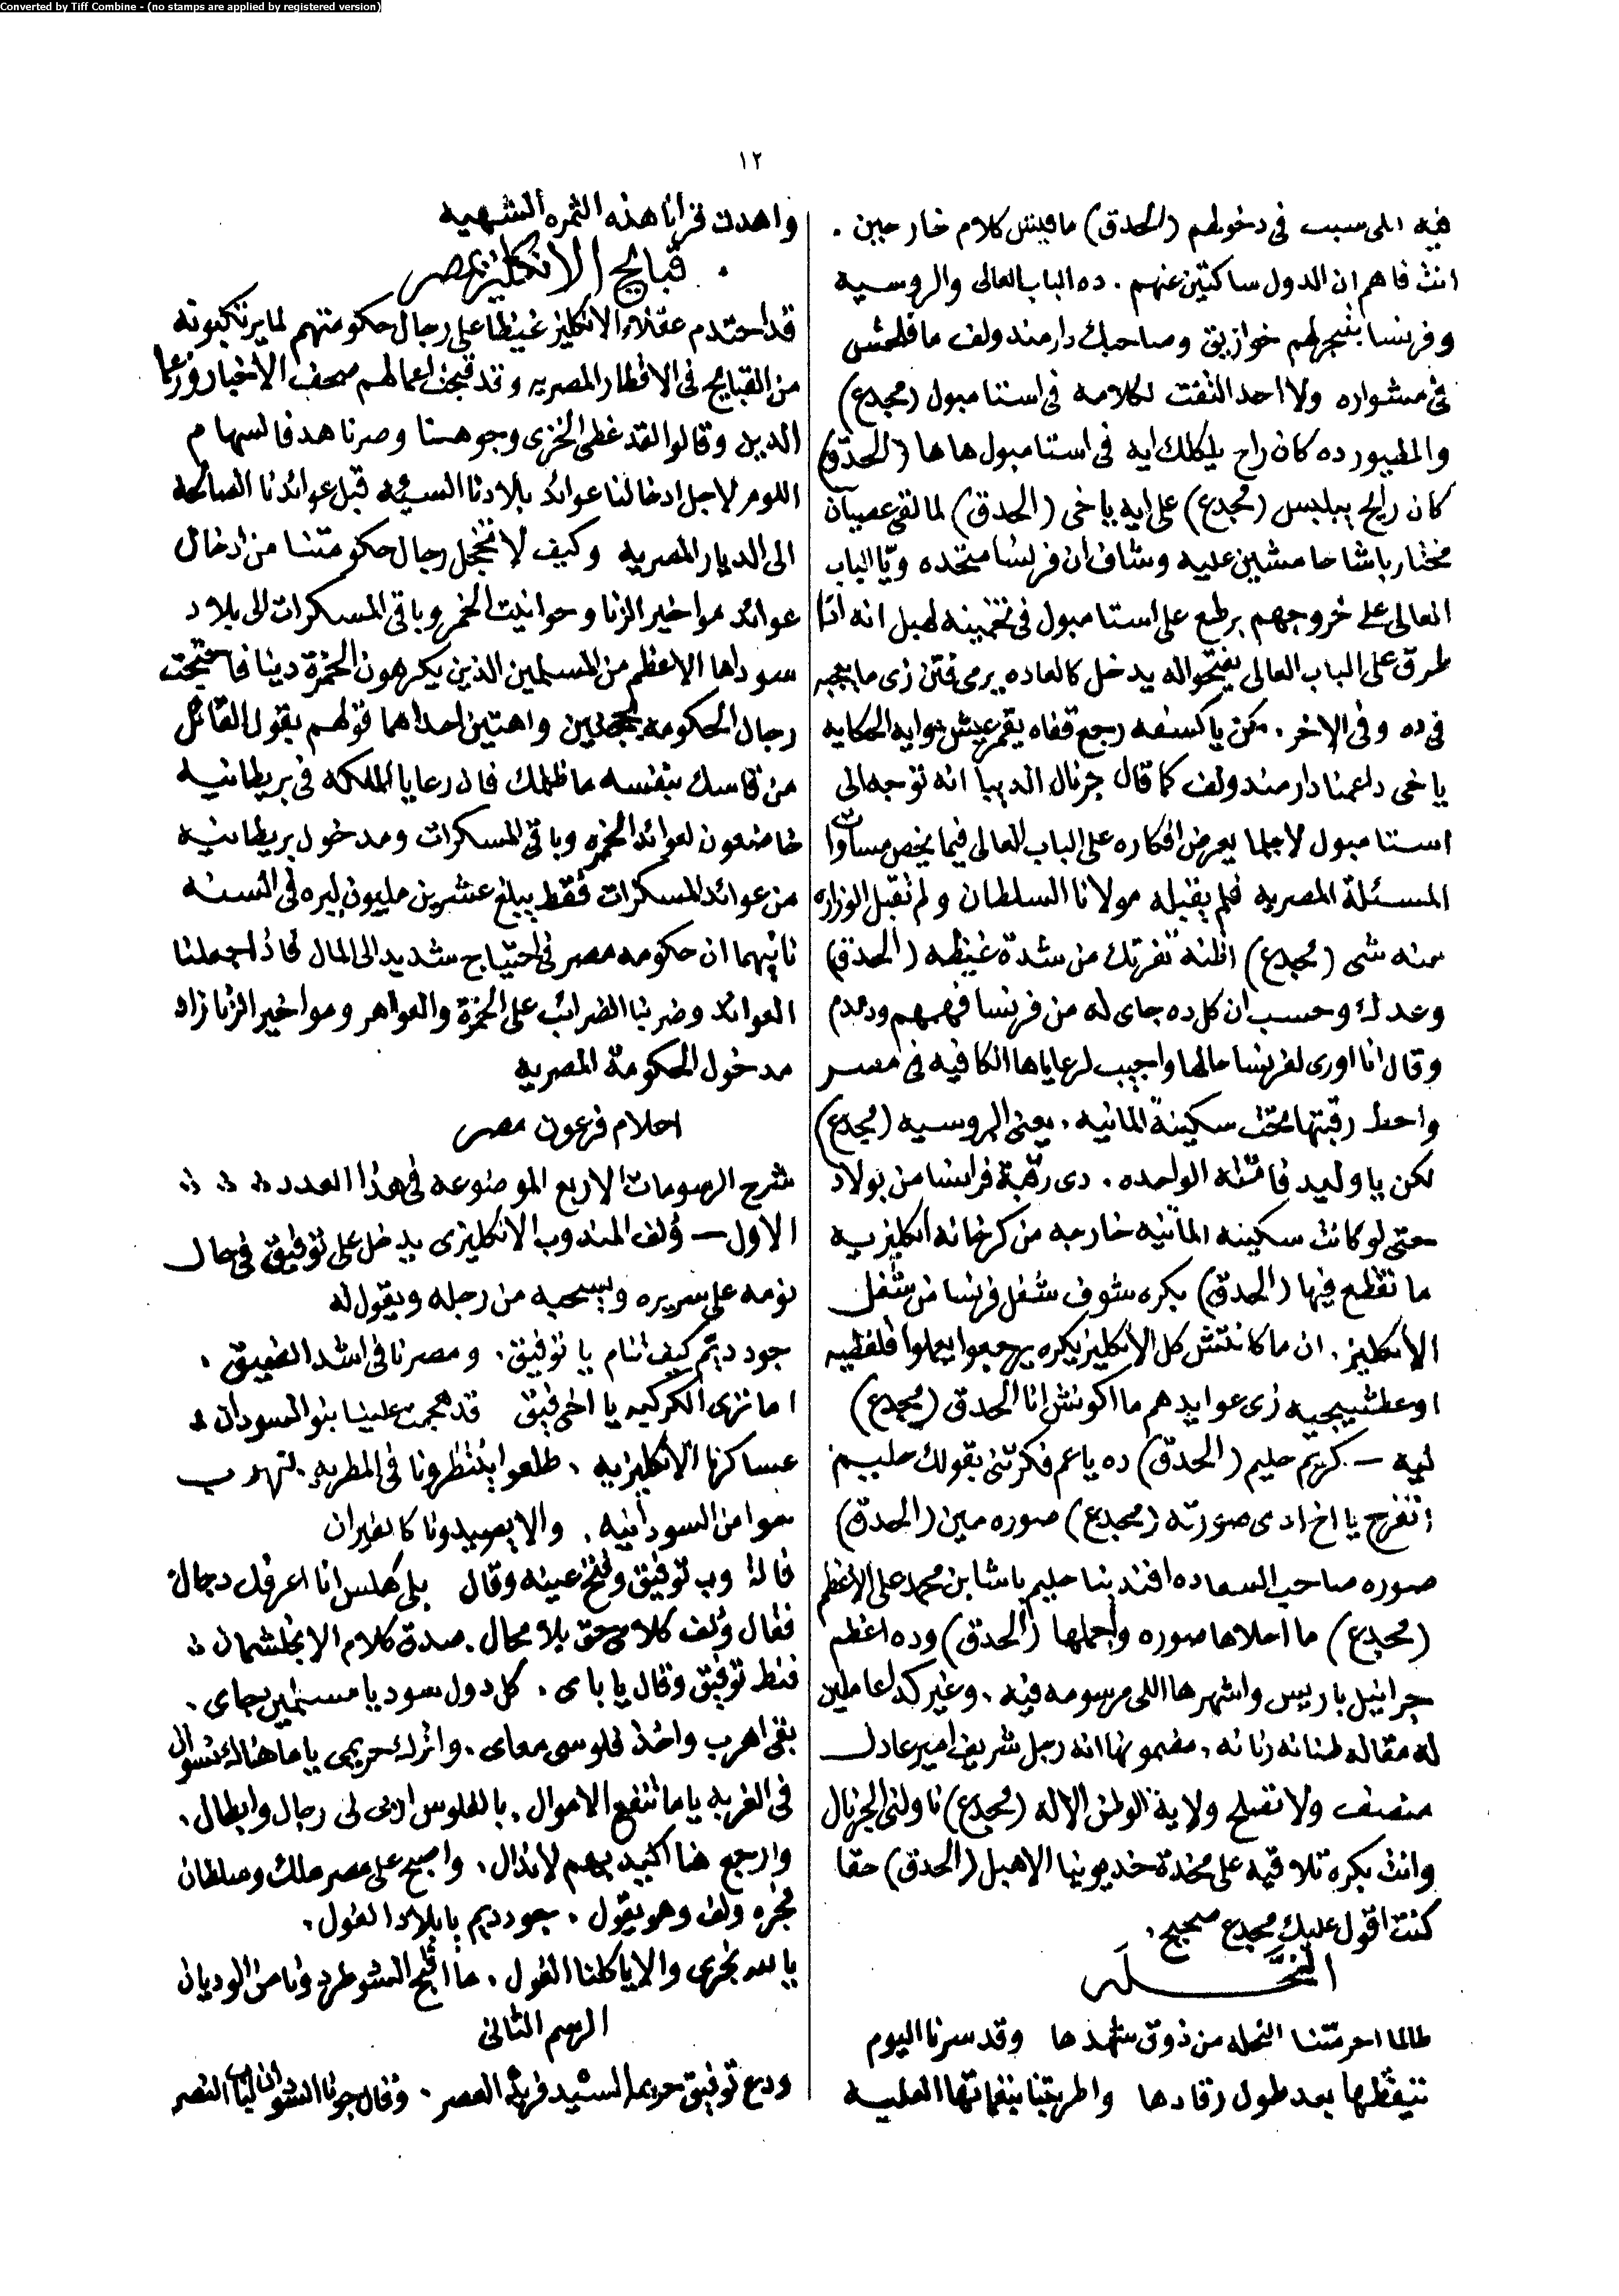 Converted by Tiff Combine - (no stamps are applied by registered version)
١٢
فيه اللى سبب فى دخولهم (الحدق) مافيش كلام خارجين .
انت فاهم ان الدول ساكتين عنهم . ده الباب العالى والروسيه
وفرنسا بينجرلهم خوازيق وصاحبك دارمندولف مافلحش
فى مشواره ولا احد التفت لكلامه فى استامبول (مجدع)
والطيبور ده كان راح يلكلك ايه فى استامبول هاها (الحدق)
كان رايح يبلبس (مجدع) على ايه ياخى (الحدق) لما لقى عصيان
مختار باشا ماشين عليه وشاف ان فرنسا متحده ويّا الباب
العالى على خروجهم برطع على استامبول فى تخمينه لهبل انه اذا
طرق على الباب العالى يفتحواله يدخل كالعاده يرمى فتن زى مايعجبه
فى ده وفى الاخر . لكن ياكسفه رجع قفاه يقمر عيش هوا ايه الحكايه
ياخى دا عمنا دارمندولف كما قال جرنال الديبا انه توجه الى
استامبول لاجلما يعرض افكاره على الباب العالى فيما يخص مساوات
المسئلة المصريه فلم يقبله مولانا السلطان ولم تقبل الوزاره
منه شى (مجدع) اظنه تفرتك من شدة غيظه (الحدق)
وعدك وحسب ان كل ده جاى له من فرنسا فهمهم ودمدم
وقال انا اورى لفرنسا حالها واجيب لرعاياها الكافيه فى مصر
واحط رقبتها تحت سكينة المانيه . يعنى الروسيه (مجدع)
لكن ياوليد فاتته الواحده . دى رقبة فرانسا من بولاد
حتى لو كانت سكينه المانيه خارجه من كرخانه انكليزيه
ما تقطع فيها (الحدق) بكره شوف شغل فرنسا من شغل
الانكليز . ان ما كانتش كل الانكليز بكره يرجعوا يعملوا فلفطيه
اوعطشيجيه زى عوايدهم ما اكونش انا الحدق (مجدع)
ليه – كريم حليم (الحدق) ده ياعم فكرتنى بقولك حليم
اتفرج يا اخ ادى صورته (مجدع) صوره مين (الحدق)
صوره صاحب السعاده افندينا حليم باشا بن محمد على الاعظم
(مجدع) ما احلاها صوره واجملها (الحدق) وده اعظم
جرانيل باريس واشهرها اللى مرسومه فيه . وغير كدا عاملين
له مقاله طنانه رنانه . مضمونها انه رجل شريف امير عادل
منصف ولا تصلح ولاية الوطن الا له (مجدع) ناولنى الجرنال
وانت بكره تلاقيه على مخدة خديوينا الاهبل (الحدق) حقا
كنت اقول عليك مجدع صحيح .
النحله
طالما احرمتنا النحله من ذوق شهدها وقد سرنا اليوم
تيقظها بعد طول رقادها واطربتنا بنغماتها العليه
واهدت قرانا هذه الثمره الشهيه
قبايح الانكليز بمصر
قد احتدم عقلاء الانكليز غيظا على رجال حكومتهم لما يرتكبونه
من القبايح فى الاقطار المصريه وقد قبحت اعمالهم صحف الاخبار وزعما
الدين وقالوا لقد غطى الخزى وجوهنا وصرنا هدفا لسهام
اللوم لاجل ادخالنا عوائد بلادنا السيئه قبل عوائدنا الصالحه
الى الديار المصريه وكيف لا تخجل رجال حكومتنا من ادخال
عوائد مواخير الزنا وحوانيت الخمر وباقى المسكرات الى بلاد
سوداها الاعظم من المسلمين الذين يكرهون الخمرة دينا فاحتجت
رجال الحكومه بحجتين واهيتين احداهما قولهم بقول القائل
من قاسك بنفسه ما ظلمك فان رعايا الملكه فى بريطانيه
خاضعون لعوائد الخمره وباقى المسكرات ومدخول بريطانيه
من عوائد المسكرات فقط يبلغ عشرين مليون ليره فى السنه
ثانيهما ان حكومه مصر فى احتياج شديد الى المال فاذا جملنا
العوائد وضربنا الضرائب على الخمرة والعواهر ومواخير الزنا زاد
مدخول الحكومة المصريه
احلام فرعون مصر
شرح الرسومات الاربع الموضوعه فى هذا العدد
الاول – ولف المندوب الانكليزى يدخل على توفيق فى حال
نومه على سريره ويسحبه من رجله ويقول له
جود ديم كيف تنام يا توفيق . ومصرنا فى اشد الضيق .
اما ترى الكركبه يا اخى فيق قد هجمت علينا بنو السودان
عساكرنا الانكليزيه . طلعوا ينتظرونا فى المطريه . لنهرب
سوا من السودانيه . والا يصيدونا كالفيران
قال وب توفيق وفتح عينه وقال بلى هلس انا اعرفك دجال
فقال ولف كلامى حق بلا محال . صدق كلام الانجلشمان
فنط توفيق وقال ياباى . كل دول سود يا مستلمين بجاى .
بقى اهرب واخذ فلوسى معاى . واترك حريمى ياما هناك نسوان
فى الغربه ياما تنفع الاموال . بالفلوس اربى لى رجال وابطال .
وارجع هنا اكيد بهم لانذال . واصبح على مصر ملك وسلطان
فجره ولف وهو يقول . جود ديم يا بلاد الفول .
يا لله نجرى والا ياكلنا الغول . ما اقبح الشو طردونا من الوديان
الرسم الثانى
ودع توفيق حريمه السيد فريد العصر . وقال